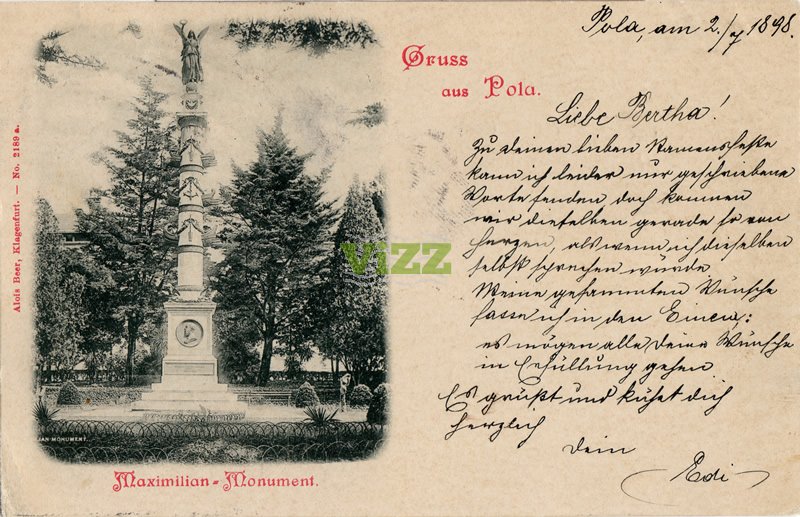 Pola, am 2./7 1898.
Gruss
aus Pola.
Liebe Bertha!
Zu deinem lieben Namensfeste
kann ich leider nur geschriebene
Worte senden doch kommen
mir dieselben gerade so von
Herzen, als wenn ich dieselben
selbst sprechen würde.
Meine gesammten Wünsche
fasse ich in den Einen:
es mögen alle Deine Wünsche
in Erfüllung gehen
Es grüßt und küßt dich
herzlich
Dein
Edi
Alois Beer, Klagenfurt. — No. 2189 a.
VIZZ
JAN-MONUMENT.
Maximilian-Monument.